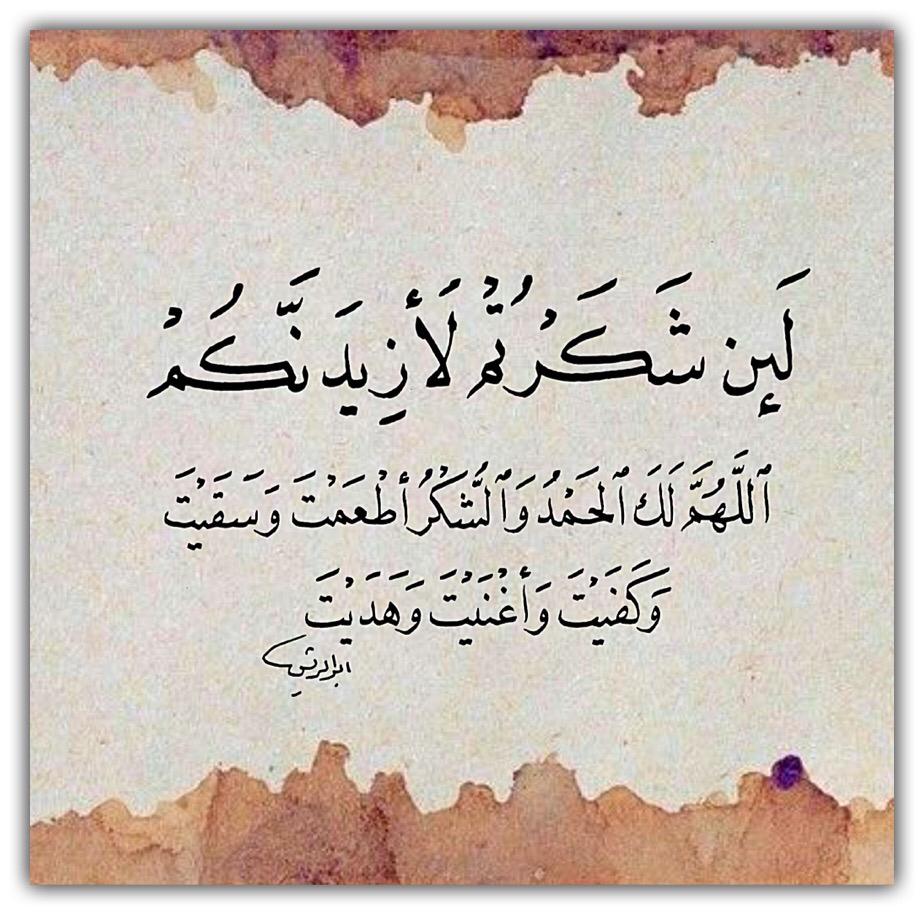 لَئِن شَكَرْتُمْ لَأَزِيدَنَّكُمْ
ٱللَّهُمَّ لَكَ ٱلْحَمْدُ وَٱلشُّكْرُ أَطْعَمْتَ وَسَقَيْتَ
وَكَفَيْتَ وَأَغْنَيْتَ وَهَدَيْتَ